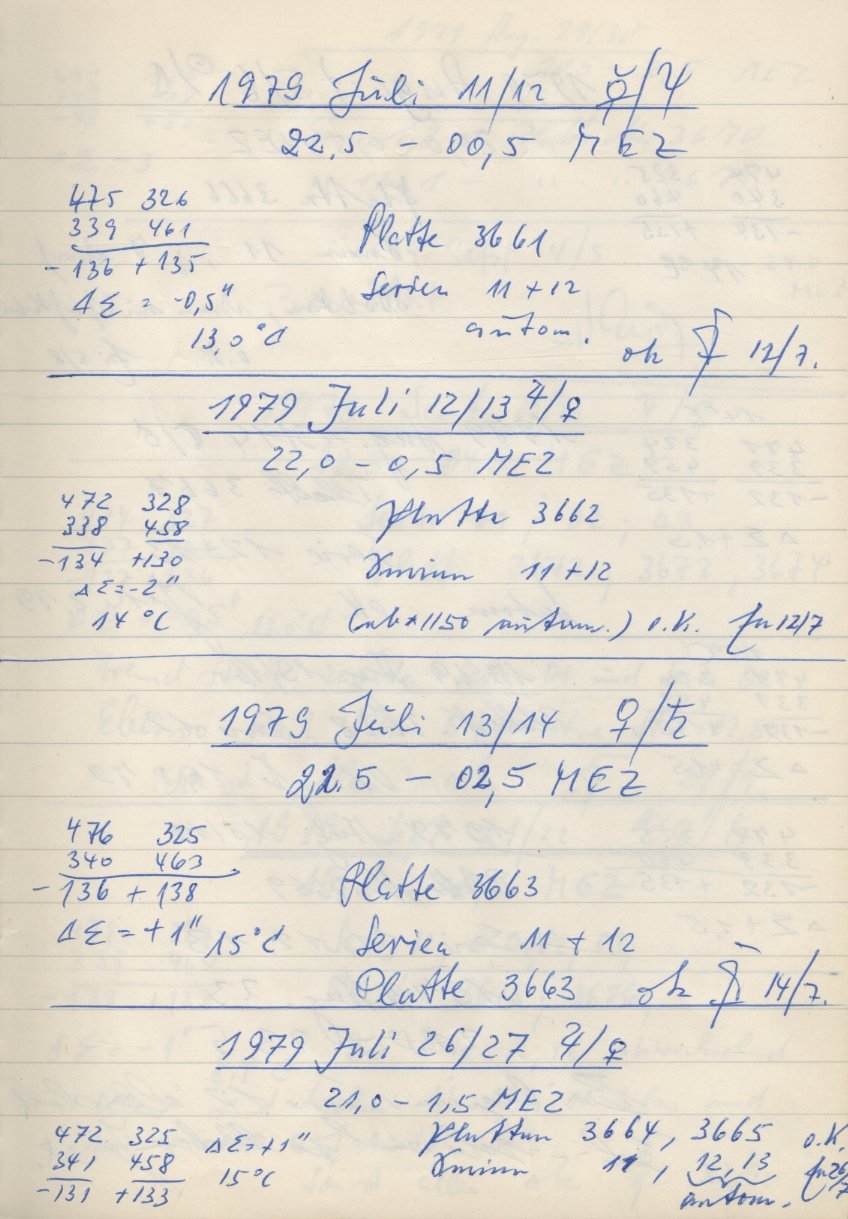 1979 Juli 11/12 ☿/♃
22.5 - 00,5 MEZ
475 326
339 461
-136 +135
ΔΣ = -0,5"
13,0 °C
Platte 3661
Serien 11 + 12
autom.
ok 12/7.
1979 Juli 12/13 ♃/♀
22,0 - 0,5 MEZ
472 328
338 458
-134 +130
ΔΣ = -2"
14 °C
Platte 3662
Serien 11 + 12
(ab * 1150 autom.) o.K. 12/7
1979 Juli 13/14 ♀/♄
22.5 - 02,5 MEZ
476 325
340 463
-136 + 138
ΔΣ = +1" 15°C
Platte 3663
Serien 11 + 12
Platte 3663 ok 14/7.
1979 Juli 26/27 ♃/♀
21,0 - 1,5 MEZ
472 325
341 458
-131 +133
ΔΣ = +1"
15°C
Platten 3664, 3665 o.K.
Serien 11, 12, 13 26/7
autom.